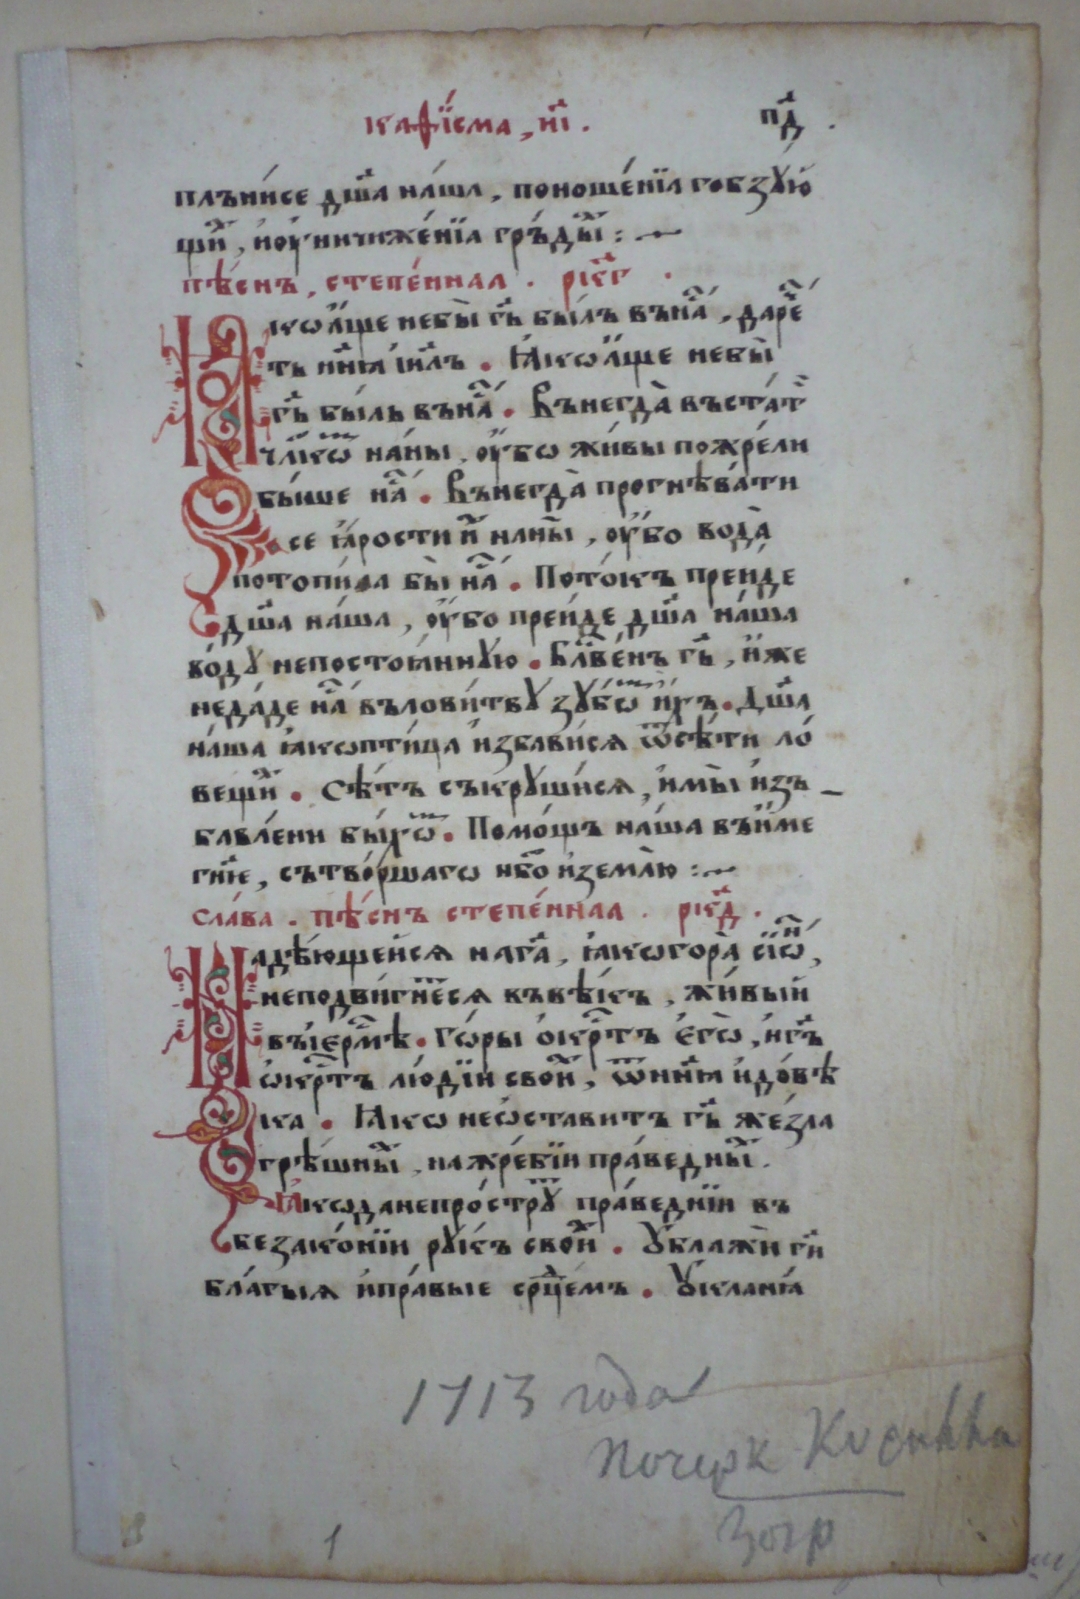 каѳі́сма, и҃і.
п҃д
плъни́се дш҃а на́ша, поноше́нїа гобзꙋю́
щи́ⷯ, и҆оу҆ничиже́нїа гръ́дыⷯ :
пѣ́снь, степе́ннаа. рк҃г.
Ꙗкѡа҆́ще небы̀ гь҃ бы́лъ въна́ⷭ, дарⷱ҇е́
ть нн҃ꙗ і҆и҃лъ. Ꙗ҆́кѡа҆́ще небы̀
гь҃ бы́ль въна́ⷭ. Вънегда̀ въста́тⷤ
чл҃кѡⷨ на́ны, оу҆́бѡ жи́вы пожре́ли
бы́ше на́ⷭ. Вънегда̀ прогнѣ́вати
се ꙗ҆́рости и҆́ⷯ наны̀, оу҆́бо вода̀
потопи́ла бы̀ на́ⷭ. Пото́къ преиде
дш҃а на́ша, оу҆́бо преи́де дш҃а на́ша
во́дꙋ непостоꙗ́ннꙋю. Блⷭ҇ве́нъ гь҃, и҆́же
неда́де на́ⷭ вълови́твꙋ зꙋбѡ́ⷨ и҆́хъ. Дш҃а
на́ша ꙗ҆́кѡпти́ца и҆зба́висѧ ѿсѣ́ти ло́
вещиⷯ. Сѣ́ть съкрꙋши́сѧ, и҆мы̀ и҆зъ
ба́влени бы́хѡⷨ. По́мощъ на́ша въи҆́ме
гн҃ꙗ, сътво́ршагѡ нб҃о и҆землю̀ :
сла́ва. пѣ́снь степе́ннаа. рк҃д.
Надѣ́ющеисѧ нагⷭ҇а, ꙗ҆́кѡгора̀ сїѡ́ⷩ,
неподви́гнⷮесѧ въвѣ́къ, жи́выи
въі҆ерⷭ҇мѣ. Го́ры ѻ҆́крⷭ҇тъ є҆гѡ̀, и҆гь҃
ѡ҆́крⷭ҇тъ лю́дїи свои́ⷯ, ѿнн҃ꙗ и҆до́вѣ
ка. Ꙗ҆́кѡ неѡ҆ста́витъ гь҃ же́зла
грѣ́шныⷯ, нажре́бїи пра́ведныⷯ.
Ꙗ҆́кѡданепро́стрꙋⷮ пра́веднїи въ
безако́нїи рꙋ́къ свои́ⷯ. Ѹблажѝ гн҃
благы́ѧ и҆пра́вые срⷣце́мъ. Ѹкланꙗ́
1713 года
почерк
Зогр
1